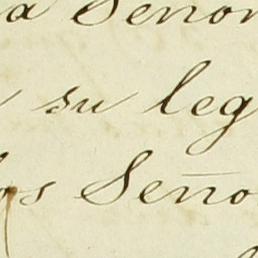 a Señor
su leg
os Seño